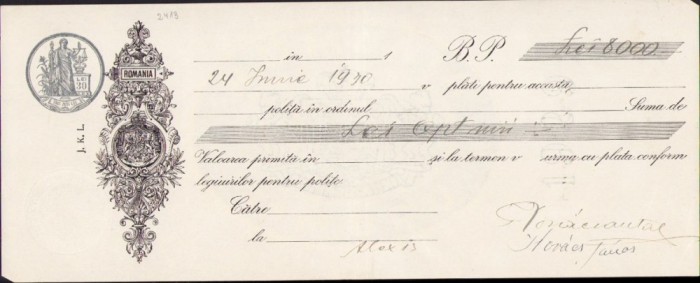 2473
în 1 B. P. Lei 8000
ROMANIA
24 Iunie 1930 v plăti pentru această
LEI
30
poliță în ordinul Suma de
Lei opt mii
J. K. L.
Valoarea primită în și la termen v urma cu plata conform
legiuirilor pentru polițe
Către
la
Kovács
János